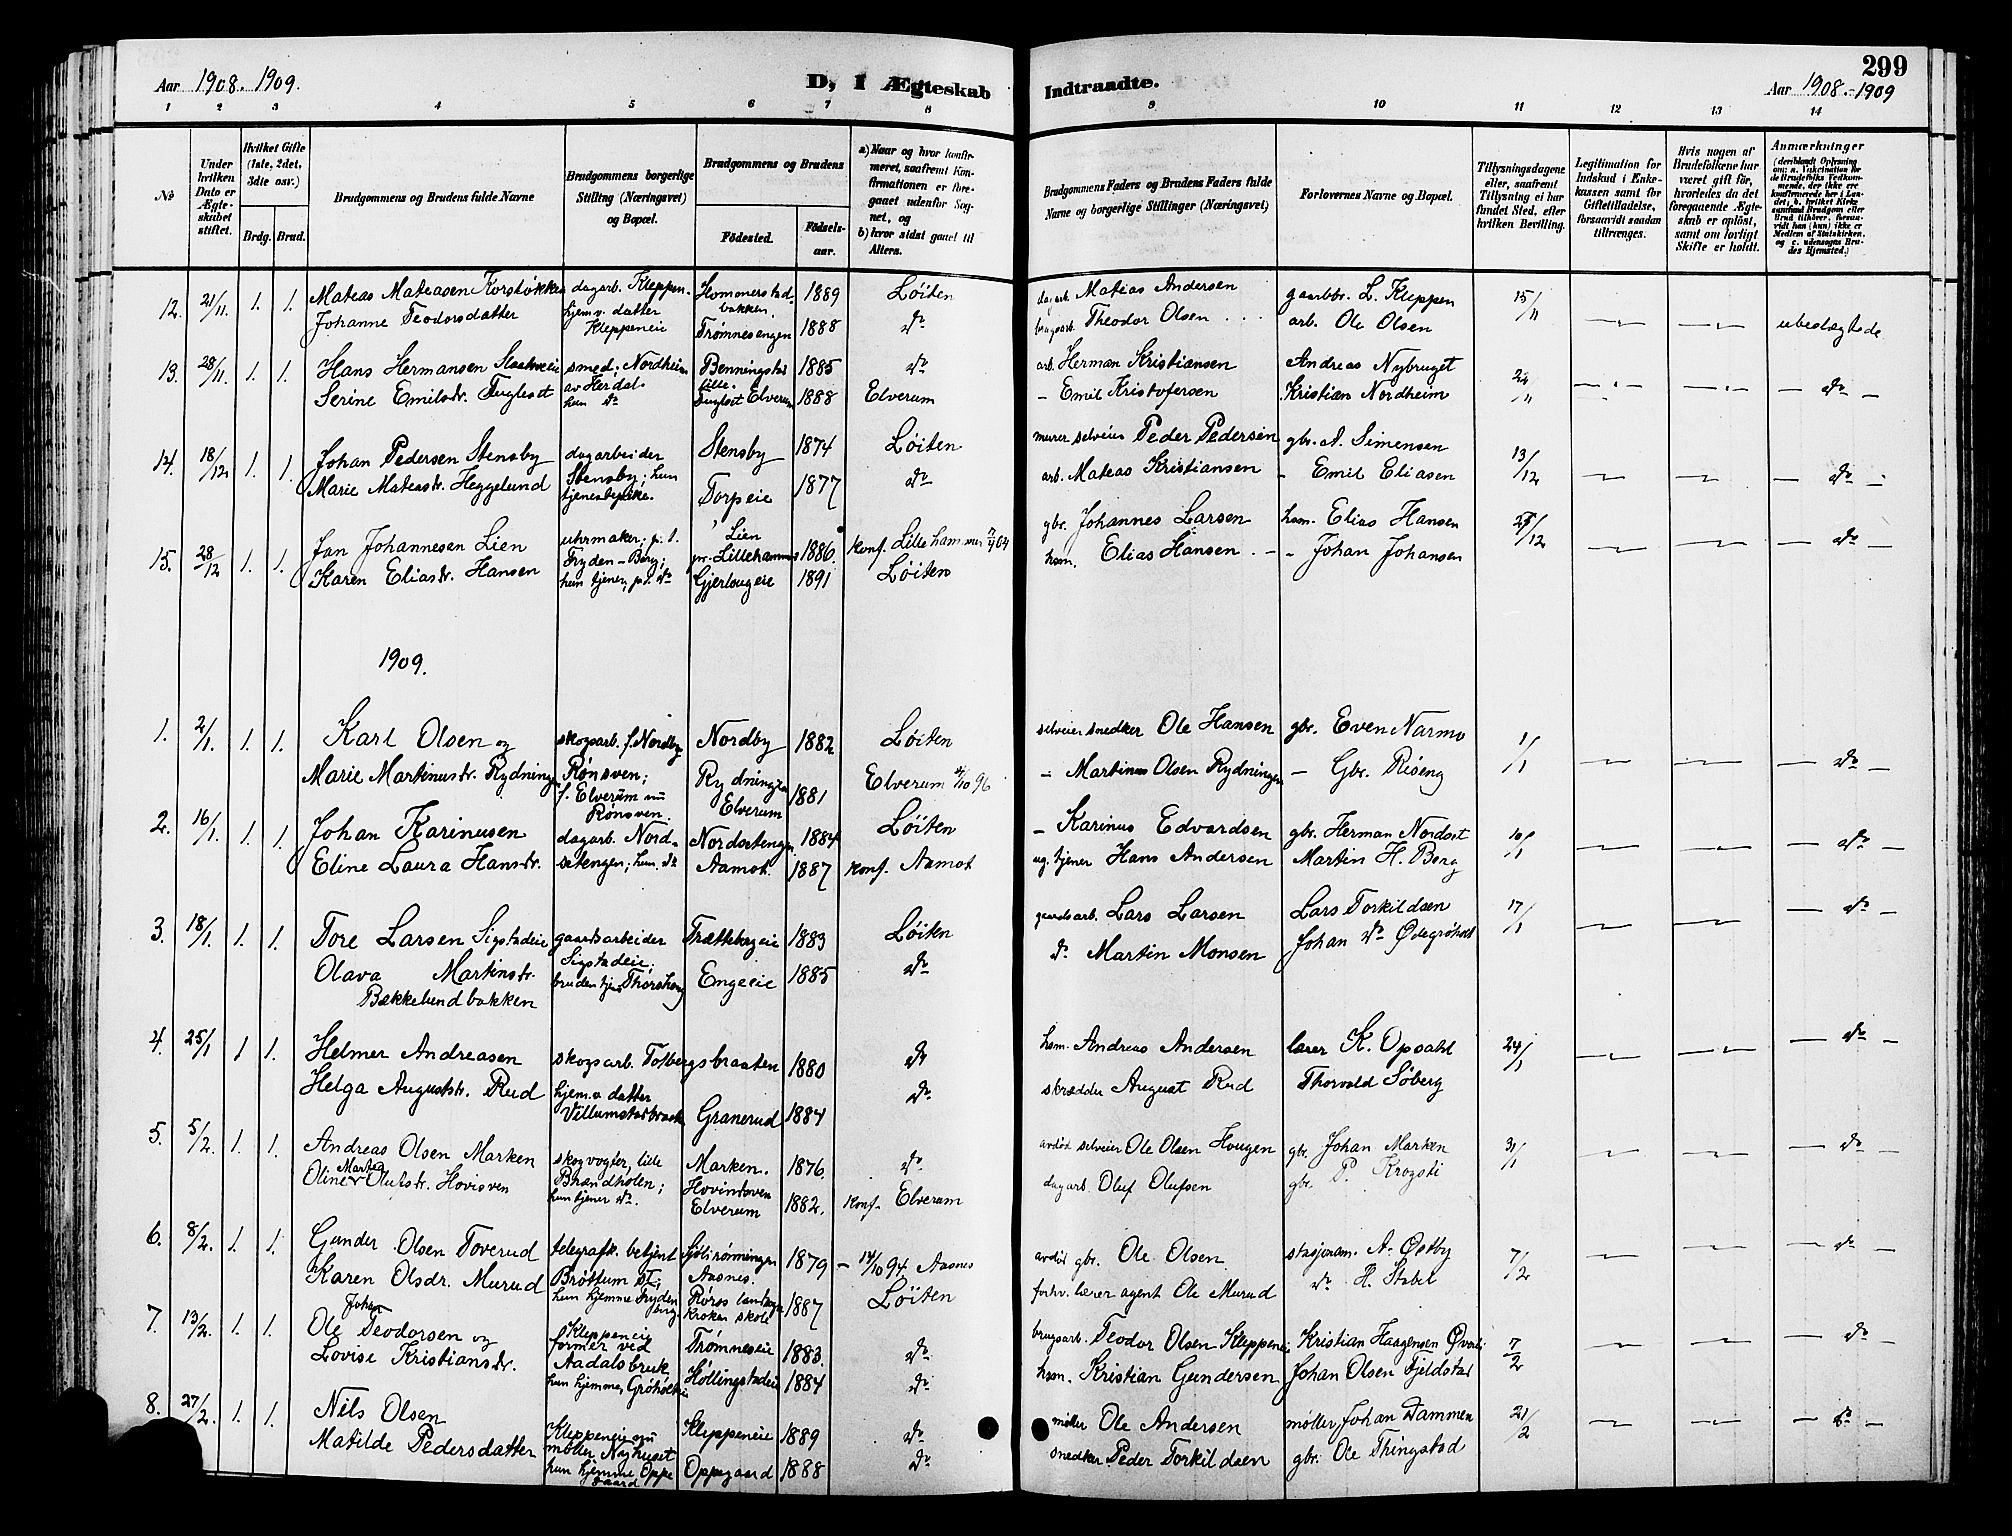 299
Aar 1908. 1909.
D, 1 Ægteskab
Indtraadte.
Aar 1908.-1909
1 2 3 4 5 6 7 8 9 10 11 12 13 14
№
Under hvilken Dato er Ægteskabet stiftet.
Hvilket Gifte (1ste, 2det, 3die osv.)
Brdg. Brud.
Brudgommens og Brudens fulde Navne
Brudgommens borgerlige Stilling (Næringsvei) og Bopæl.
Brudgommens og Brudens
Fødested.
Fødselsaar.
a) Naar og hvor konfirmeret, saafremt Konfirmationen er foregaaet udenfor Sognet, og
b) hvor sidst gaaet til Alters.
Brudgommens Faders og Brudens Faders fulde Navne og borgerlige Stillinger (Næringsvei)
Forlovernes Navne og Bopæl.
Tillysningsdagene eller, saafremt Tillysning ei har fundet Sted, efter hvilken Bevilling.
Legitimation for Indskud i Enkekassen samt for Giftetilladelse, forsaavidt saadan tiltrænges.
Hvis nogen af Brudefolkene har været gift før, hvorledes da det foregaaende Ægteskab er opløst, samt om lovligt Skifte er holdt.
Anmærkninger
12. 21/11. 1. 1. Mateas Mateasen Korsbøkken dagarb. Kleppen. Hommerstadbakken. 1889 Løiten dagarb. Matias Andersen gaardbr. L. Kleppen 15/11
Johanne Teodorsdatter hjem.v. datter Kleppeneie Trømnesengen 1888 do brugsarb. Theodor Olsen arb. Ole Olsen ubeslægtede
13. 28/11. 1. 1. Hans Hermansen smed, Nordheim 1885 do arb. Herman Kristiansen Andreas Nybruget
Serine Emilsdr. Fuglset hun do Fuglset Elverum 1888 Elverum - Emil Kristofersen Kristian Nordheim do
14. 18/12 1. 1. Johan Pedersen Stensby dagarbeider Stensby 1874 Løiten murer selveier Peder Pedersen gbr. A. Simensen 13/12
Marie Mateasdr. Heggelund Stensby; hun tjenestepike. Torpeie 1877 do arb. Mateas Kristiansen - Emil Eliasen do
15. 28/12 1. 1. Jan Johannesen Lien uhrmaker; p.t. Fryden-Berg; Lien pr. Lillehammer 1886. konf. Lillehammer gbr. Johannes Larsen hsm. Elias Hansen
Karen Eliasdr. Hansen hun tjener, p.t. do Gjerlougeie 1891 Løiten hsm. Elias Hansen - Johan Johansen do
1909.
1. 2/1. 1. 1. Karl Olsen og skogsarb. f. Nordby Nordby 1882. Løiten selveier snedker Ole Hansen gbr. Even Narmo 1/1
Marie Martinusdr. Rydningen Rønsven; f. Elverum nu Rønsven. Rydningen Elverum 1881 Elverum - Martinus Olsen Rydningen - Gbr. Riseng do
2. 16/1. 1. 1. Johan Karinusen dagarb. Nordsetengen; hun do Nordsetengen 1884 Løiten - Karinus Edvardsen gbr. Herman Nordset 10/1
Eline Laura Hansdr. Aamot. 1887 konf. Aamot ug. tjener Hans Andersen Martin H. Berg do
3. 18/1. 1. 1. Tore Larsen Sigstadeie gaardsarbeider Sigstadeie; Trættebergeie 1883 Løiten gaardsarb. Lars Larsen Lars Torkildsen 17/1
Olava Martinsdr. Bækkelundbakken bruden tjen. Engeeie 1885 do do Martin Monsen Johan do do
4. 25/1 1 1. Helmer Andreasen skogsarb. Totbergsbraaten 1880 do hsm. Andreas Andersen lærer K. Opsahl 24/1
Helga Augustdr. Rud hjem.v datter Granerud 1884 do skrædder August Rud Thorvald Søberg do
5. 5/2. 1. 1. Andreas Olsen Marken skogvogter, lille Brandholen; Marken. 1876. do avdød selveier Ole Olsen Hougen gbr. Johan Marken 31/1
Oline Martea Olufsdr. Hovisven hun tjener do. Elverum 1882. konf. Elverum dagarb. Oluf Olufsen gbr. P. Krogsti do
6. 8/2. 1. 1. Gunder Olsen Toverud telegrafk. betjent Brøttum St; Aasnes. 1879 - 14/10 94 Aasnes avdød gbr. Ole Olsen. A. Østby 7/2
Karen Olsdr. Murud hun hjemme Frydenberg Røros Kroken skole 1887 Løiten forhv. lærer agent Ole Murud do H. Stabel do
7. 13/2. 1. 1. Ole Johan Teodorsen og Kleppeneie former ved Aadalsbruk Trømneseie 1883. do brugsarb. Teodor Olsen Kleppeneie Kristian Haagensen 7/2
Lovise Kristiansdr. hun hjemme, Høllingstadeie 1884 do hsm. Kristian Gundersen Johan Olsen Fjeldstad do
8. 27/2. 1. 1. Nils Olsen Kleppeneie nu møller Nyhuset Kleppeneie 1889 do møller Ole Andersen møller Johan Dammen 21/2
Matilde Pedersdatter hun hjemme Oppegaard Oppegaard 1888 do snedker Peder Torkildsen gbr. Ole Thingstad do